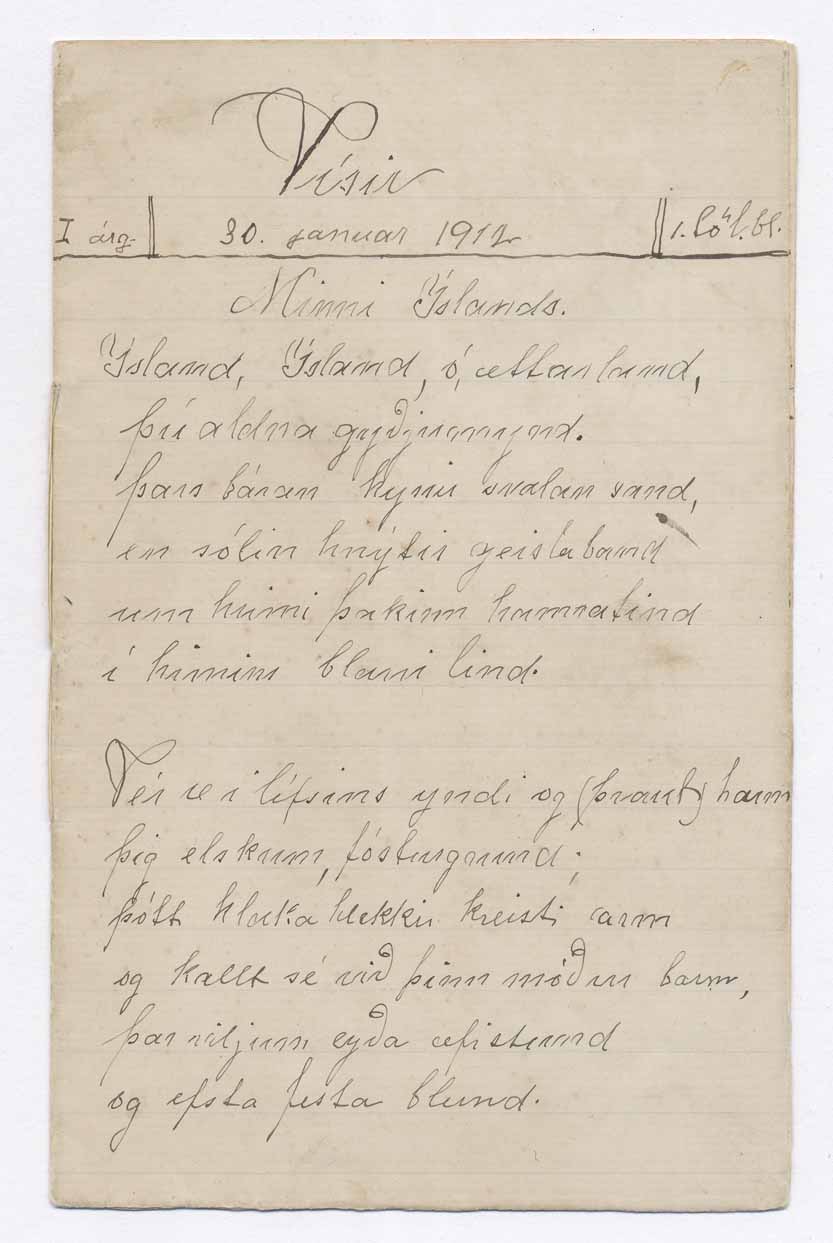 Vísir
I árg. 30. januar 1912 1. töl. bl.
Minni Íslands.
Ísland, Ísland, ó, ættarland,
þú aldna gyðjumynd.
þars báran kyssir svalan sand,
en sólin hnýtir geislaband
um hrími þakinn hamratind
í himin blárri lind.
Vér æ i lífsins yndi og (þraut) harm
þig elskum, fósturgrund;
þótt klaka hlekkir kreisti arm
og kallt sé við þinn móður barm,
þar viljum eyða æfistund
og efsta festa blund.